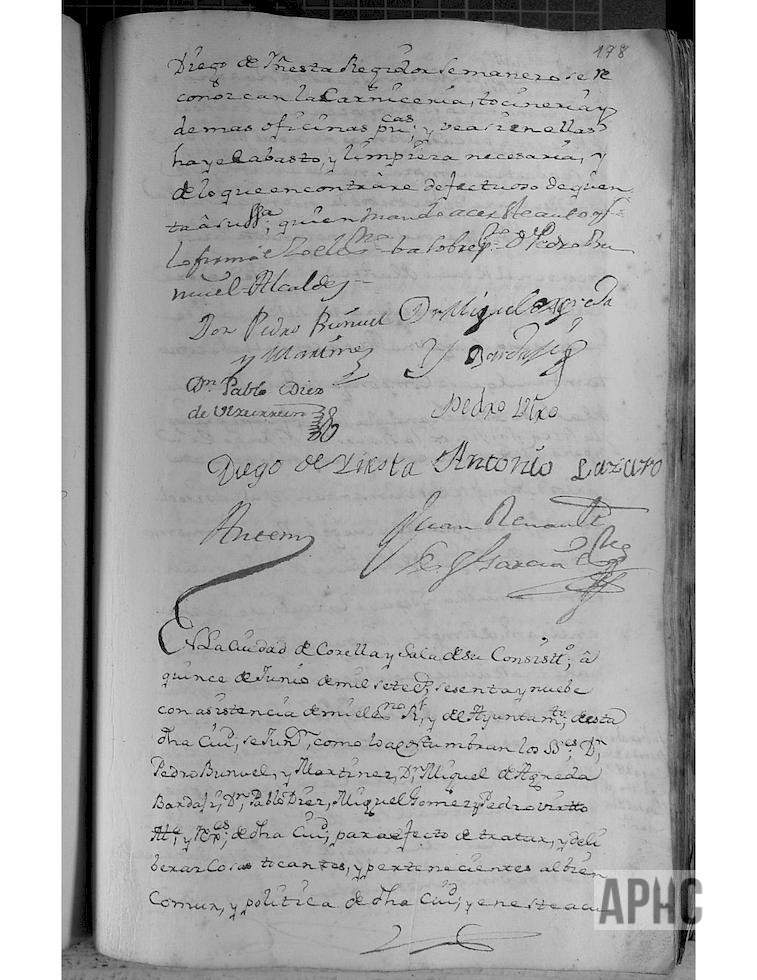 198
Diego de Iñesta Regidor Semanero se re
conozcan la Carnicería, tocinería y
demas oficinas pu.cas; y vea si en ellas
hay el abasto, y limpieza necesaria, y
de lo que encontràre defectuoso de quen
ta à su Ssa; quien mandò acer este auto y
lo firmò è Yo el ssno
nuel Alcalde
Don Pedro Buñuel Dn Miguel Agreda
y Martinez y Bardaji
Dn Pablo Diez
de Ulzurrun Pedro Virto
Diego de Yñesta Antonio Lazaro
Antemi Juan Renault
Garcia
En La Ciudad de Corella y Sala de su Consistto; à
quince de Junio de mil setecs sesenta y nuebe
con asistencia de mi el esno Rl, y de Ayuntamto, de esta
dha Ciud, se Junn, como lo acostumbran los SSes; Dn
Pedro Buñuel, y Martinez, Dn Miguel de Agreda
Bardaji, Dn Pablo Diez, Miguel Gomez y Pedro Virtto
Alle, y Rexes, de dha Ciud; para efecto de tratar, y deli
berar Cosas tocantes, y pertenecientes al bien
Comun, y política de dha Ciud; y en este acu
APHC